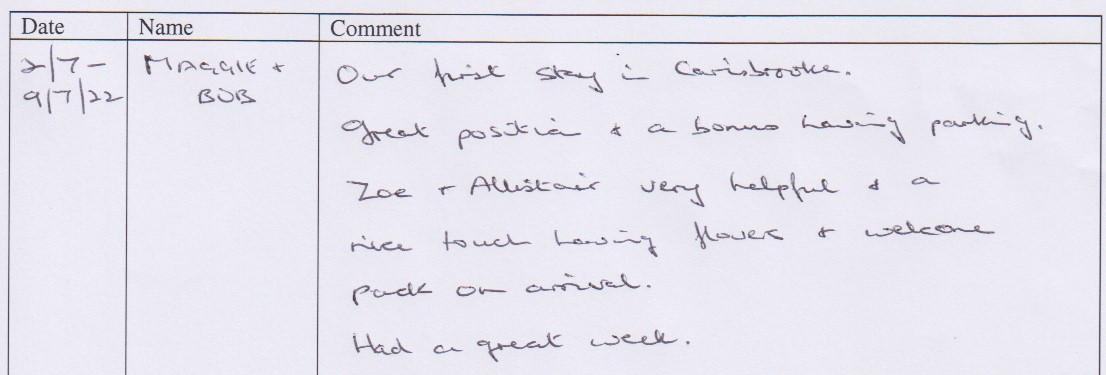 Date Name Comment
2/7- MAGGIE + Our first stay in Carisbrooke.
9/7/22 BOB
Great position & a bonus having parking.
Zoe + Allistair very helpful & a
nice touch having flowers & welcome
pack on arrival.
Had a great week.